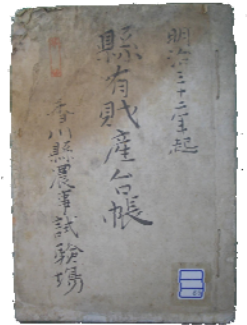 明治三十二年起
縣有財產台帳
香川縣農事試驗場